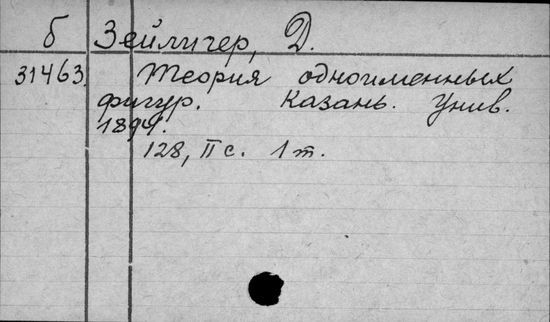 б Зейлигер, Д.
31463. Теория одноименных
фигур. Казань. Унив.
1894.
128, II с. 1 т.